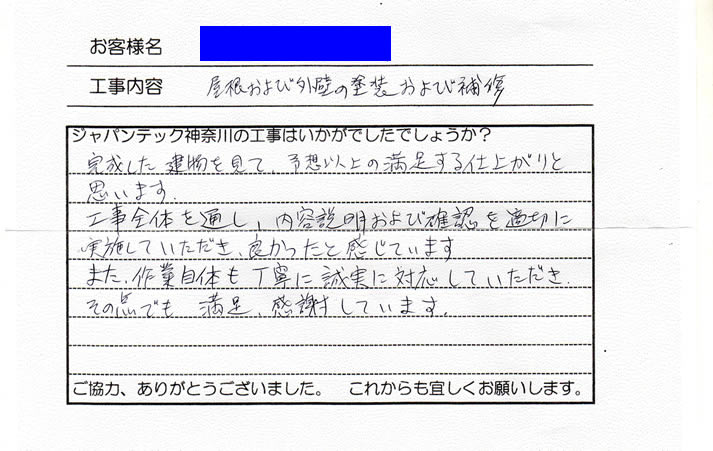 お客様名
工事内容 屋根および外壁の塗装および補修
ジャパンテック神奈川の工事はいかがでしたでしょうか？
完成した建物を見て、予想以上の満足する仕上がりと
思います。
工事全体を通し、内容説明および確認を適切に
実施していただき、良かったと感じています
また、作業自体も丁寧に誠実に対応していただき、
その点でも 満足、感謝しています。
ご協力、ありがとうございました。 これからも宜しくお願いします。